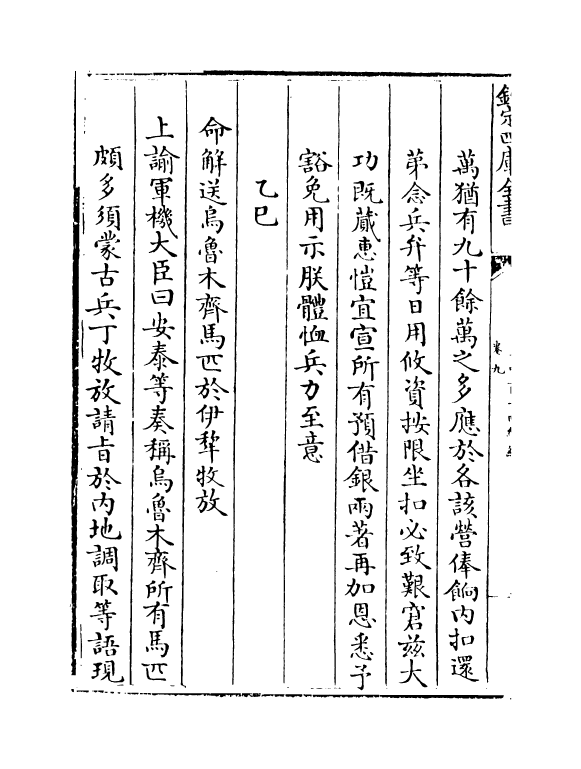 欽定四庫全書
卷九
萬猶有九十餘萬之多應於各該營俸餉内扣還
第念兵弁等日用攸資按限坐扣必致艱窘兹大
功既蕆惠愷宜宣所有預借銀兩著再加恩悉予
豁免用示朕體恤兵力至意
乙巳
命解送烏魯木齊馬匹於伊犂牧放
上諭軍機大臣曰安泰等奏稱烏魯木齊所有馬匹
頗多須蒙古兵丁牧放請旨於内地調取等語現